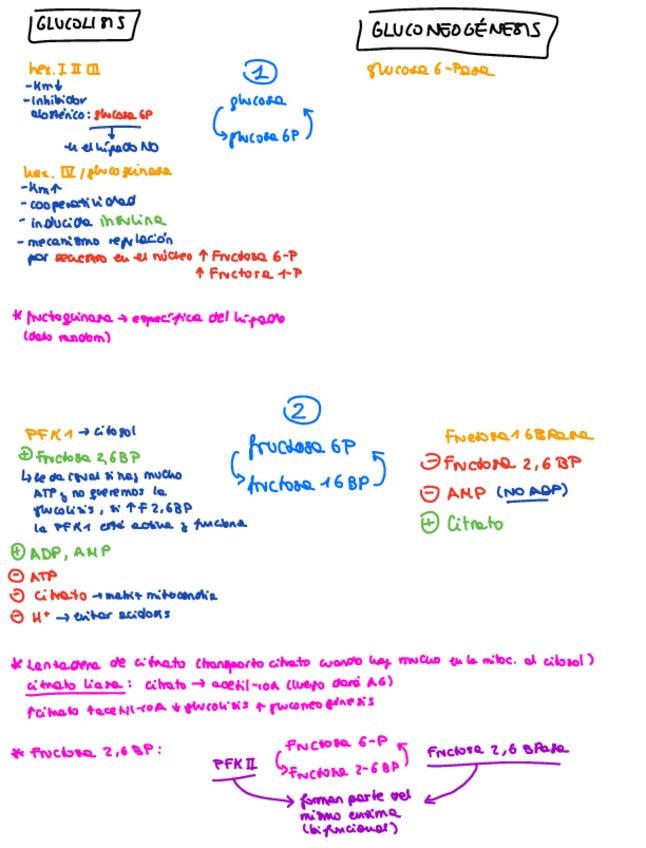 GLUCOLISIS
GLUCONEOGÉNESIS
hex. I II III
-Km↓
-inhibidor
alostérico: glucosa 6P
↓
en el hígado NO
hex. IV/glucoquinasa
-Km↑
- cooperatividad
- inducida insulina
- mecanismo regulación
por secuestro en el núcleo ↑ Fructosa 6-P
↑ Fructosa 1-P
* fructoquinasa → específica del hígado
(dato random)
1
glucosa
glucosa 6P
glucosa 6-Pasa
2
fructosa 6P
fructosa 1 6 BP
PFK1 → citosol
⊕ Fructosa 2,6 BP
↳ le da igual si hay mucho
ATP y no queremos la
glucolisis, si ↑ F 2,6BP
la PFK1 está activa y funciona
⊕ ADP, AMP
⊖ ATP
⊖ Citrato → matriz mitocondria
⊖ H⁺ → evitar acidosis
Fructosa 1 6 BPasa
⊖ Fructosa 2,6 BP
⊖ AMP (NO ADP)
⊕ Citrato
* Lanzadera de citrato (transporta citrato cuando hay mucho en la mitoc. al citosol)
citrato liasa: citrato → acetil-coA (luego dará AG)
↑citrato ↑acetil-coA ↓ glucolisis ↑ gluconeogénesis
* Fructosa 2,6 BP:
PFK II
Fructosa 6-P
Fructosa 2-6 BP
Fructosa 2,6 BPasa
forman parte del
mismo enzima
(bifuncional)